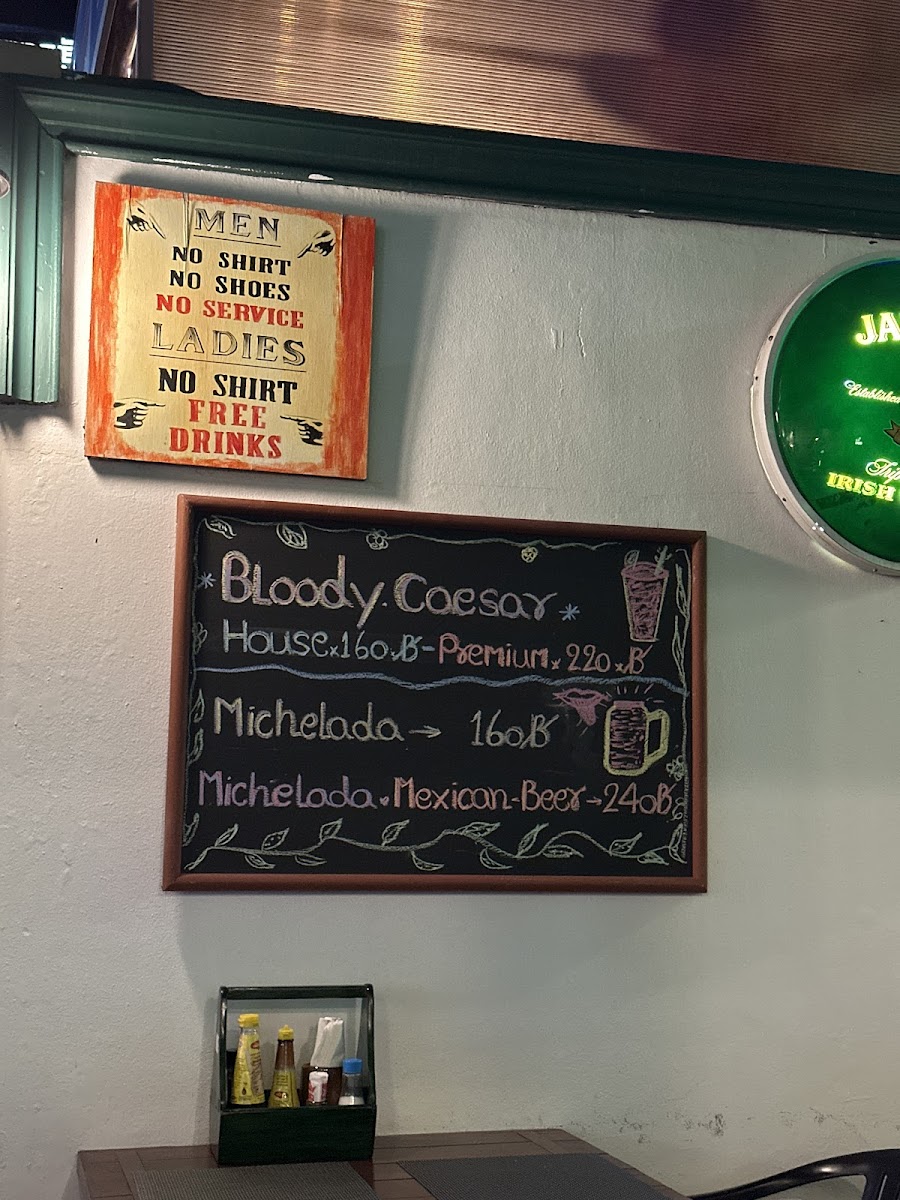 MEN
NO SHIRT
NO SHOES
NO SERVICE
LADIES
NO SHIRT
FREE
DRINKS
JA
Established
Trip
IRISH
* Bloody. Caesar *
House x 160 x ฿ - Premium x 220 x ฿
Michelada → 160 ฿
Michelada ♥ Mexican-Beer → 240 ฿